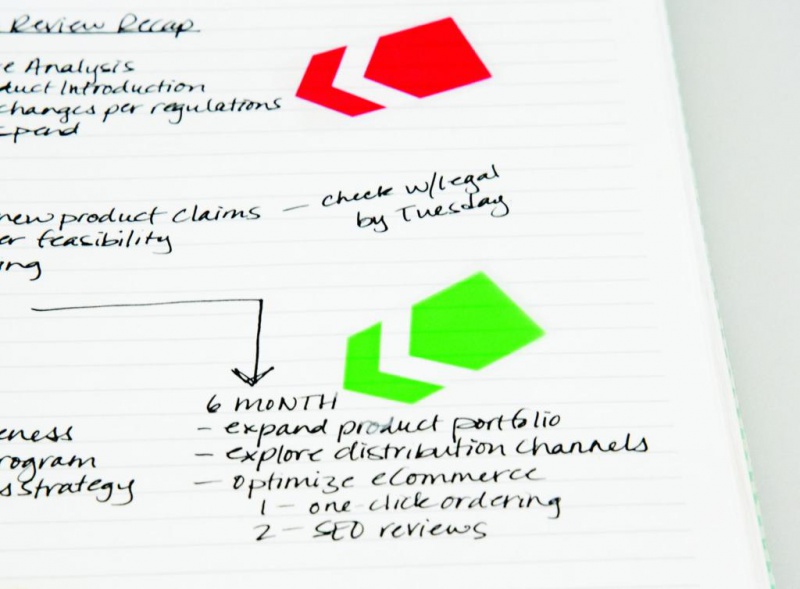 Review Recap
e Analysis
duct Introduction
changes per regulations
spend
new product claims — check w/legal
by Tuesday
er feasibility
ing
6 MONTH
eness
– expand product portfolio
rogram
– explore distribution channels
s strategy
– optimize eCommerce
1 – one click ordering
2 – SEO reviews